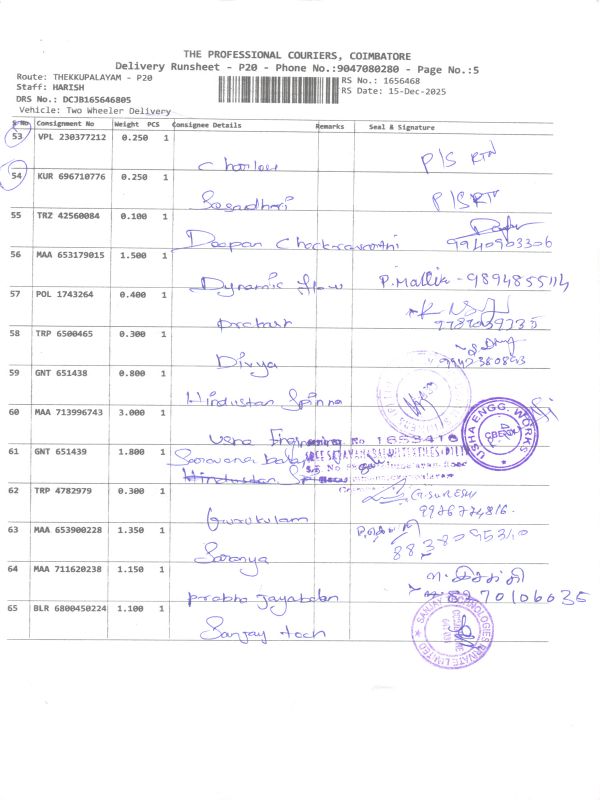 THE PROFESSIONAL COURIERS, COIMBATORE
Delivery Runsheet - P20 - Phone No.:9047080280 - Page No.:5
Route: THEKKUPALAYAM - P20
RS No.: 1656468
Staff: HARISH
RS Date: 15-Dec-2025
DRS No.: DCJB165646805
Vehicle: Two Wheeler Delivery
S No Consignment No Weight PCS Consignee Details Remarks Seal & Signature
53 VPL 230377212 0.250 1
P/S RTN
54 KUR 696710776 0.250 1
P/S RTN
55 TRZ 42560084 0.100 1
Deepan Chackravarthi 9940903306
56 MAA 653179015 1.500 1
Dynamic flow P.Mallik - 9894855114
57 POL 1743264 0.400 1
58 TRP 6500465 0.300 1
Divya 9942380893
59 GNT 651438 0.800 1
Hindustan Spinn
60 MAA 713996743 3.000 1
USHA ENGG. WORKS
Usha Engineering
61 GNT 651439 1.800 1
Saravana
62 TRP 4782979 0.300 1
G.SURESH
Gurukulam
63 MAA 653900228 1.350 1
Saranya 8838095310
64 MAA 711620238 1.150 1
Prabha Jayabalan 8270106035
65 BLR 6800450224 1.100 1
Sanjay tech
SANJAY TECHNOLOGIES PRIVATE LIMITED